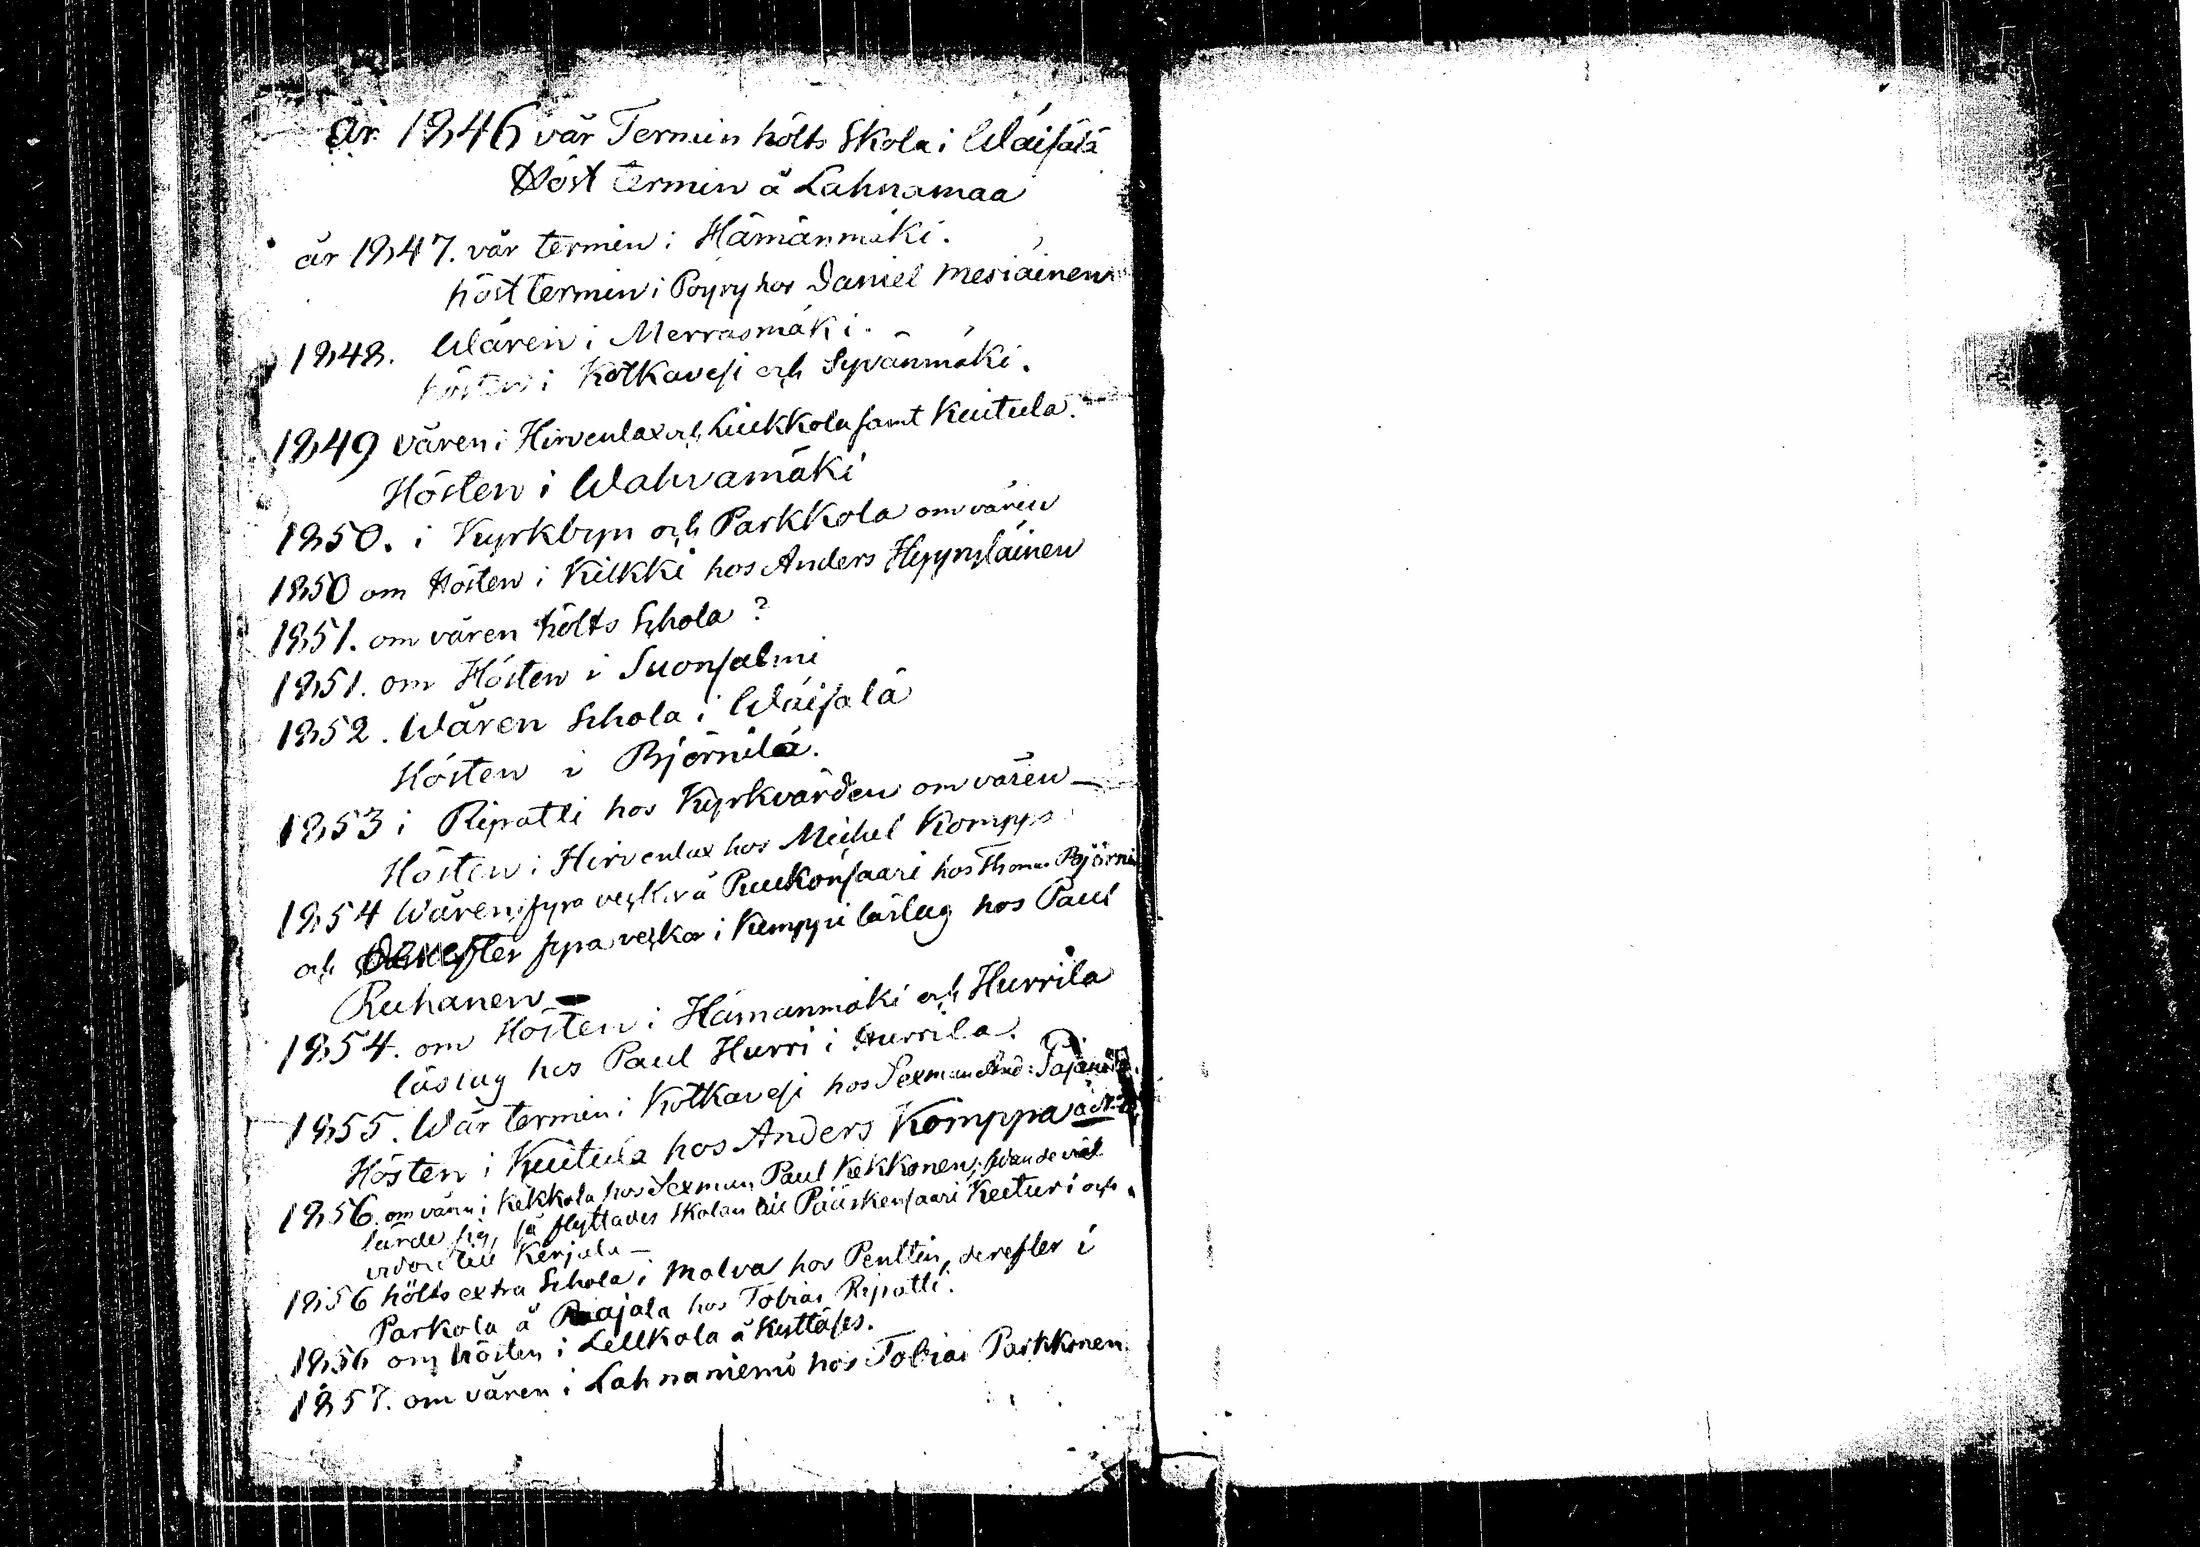 år 1846 vår Termin hölts Skola i Wäisälä
Höst termin å Lahnamaa
år 1847. vår termin i Hämänmäki.
höst termin i Pöyry hos Daniel Mesiäinen
1848. Wåren i Merrasmäki.
hösten i Kotkavesi och Syvänmäki.
1849 våren i Hirvenlax och Liukkola samt Kuitula.
Hösten i Wahvamäki
1850. i Kyrkbyn och Parkkola om våren
1850 om Hösten i Kilkki hos Anders Hyyryläinen
1851. om våren hölts Schola ?
1851. om Hösten i Suonsalmi
1852. Wåren Schola i Wäisälä
Hösten i Björnilä.
1853 i Ripatti hos Kyrkvärden om våren —
Hösten i Hirvenlax hos Michel Komppa
1854 Wåren fyra veckor å Puukonsaari hos Thomas Björni
och derefter fyra veckor i Kemppi läslag hos Paul
Ruhanen —
1854. om Hösten i Hämänmäki och Hurrila
läslag hos Paul Hurri i Hurrila.
1855. Wår termin i Kotkavesi hos Sexman And:
Hösten i Kuitula hos Anders Komppa
1856. om våren i Kekkola hos Sexman Paul Kekkonen,
lärde sig, så flyttades Skolan till Pääskensaari Keituri och
vidare till Kerjala —
1856 hölts extra Schola i Malva hos Penttin, derefter i
Parkola å Raajala hos Tobias Ripatti.
1856 om hösten i Lellkola å Kyttäses.
1857. om våren i Lahnaniemi hos Tobias Parkkonen